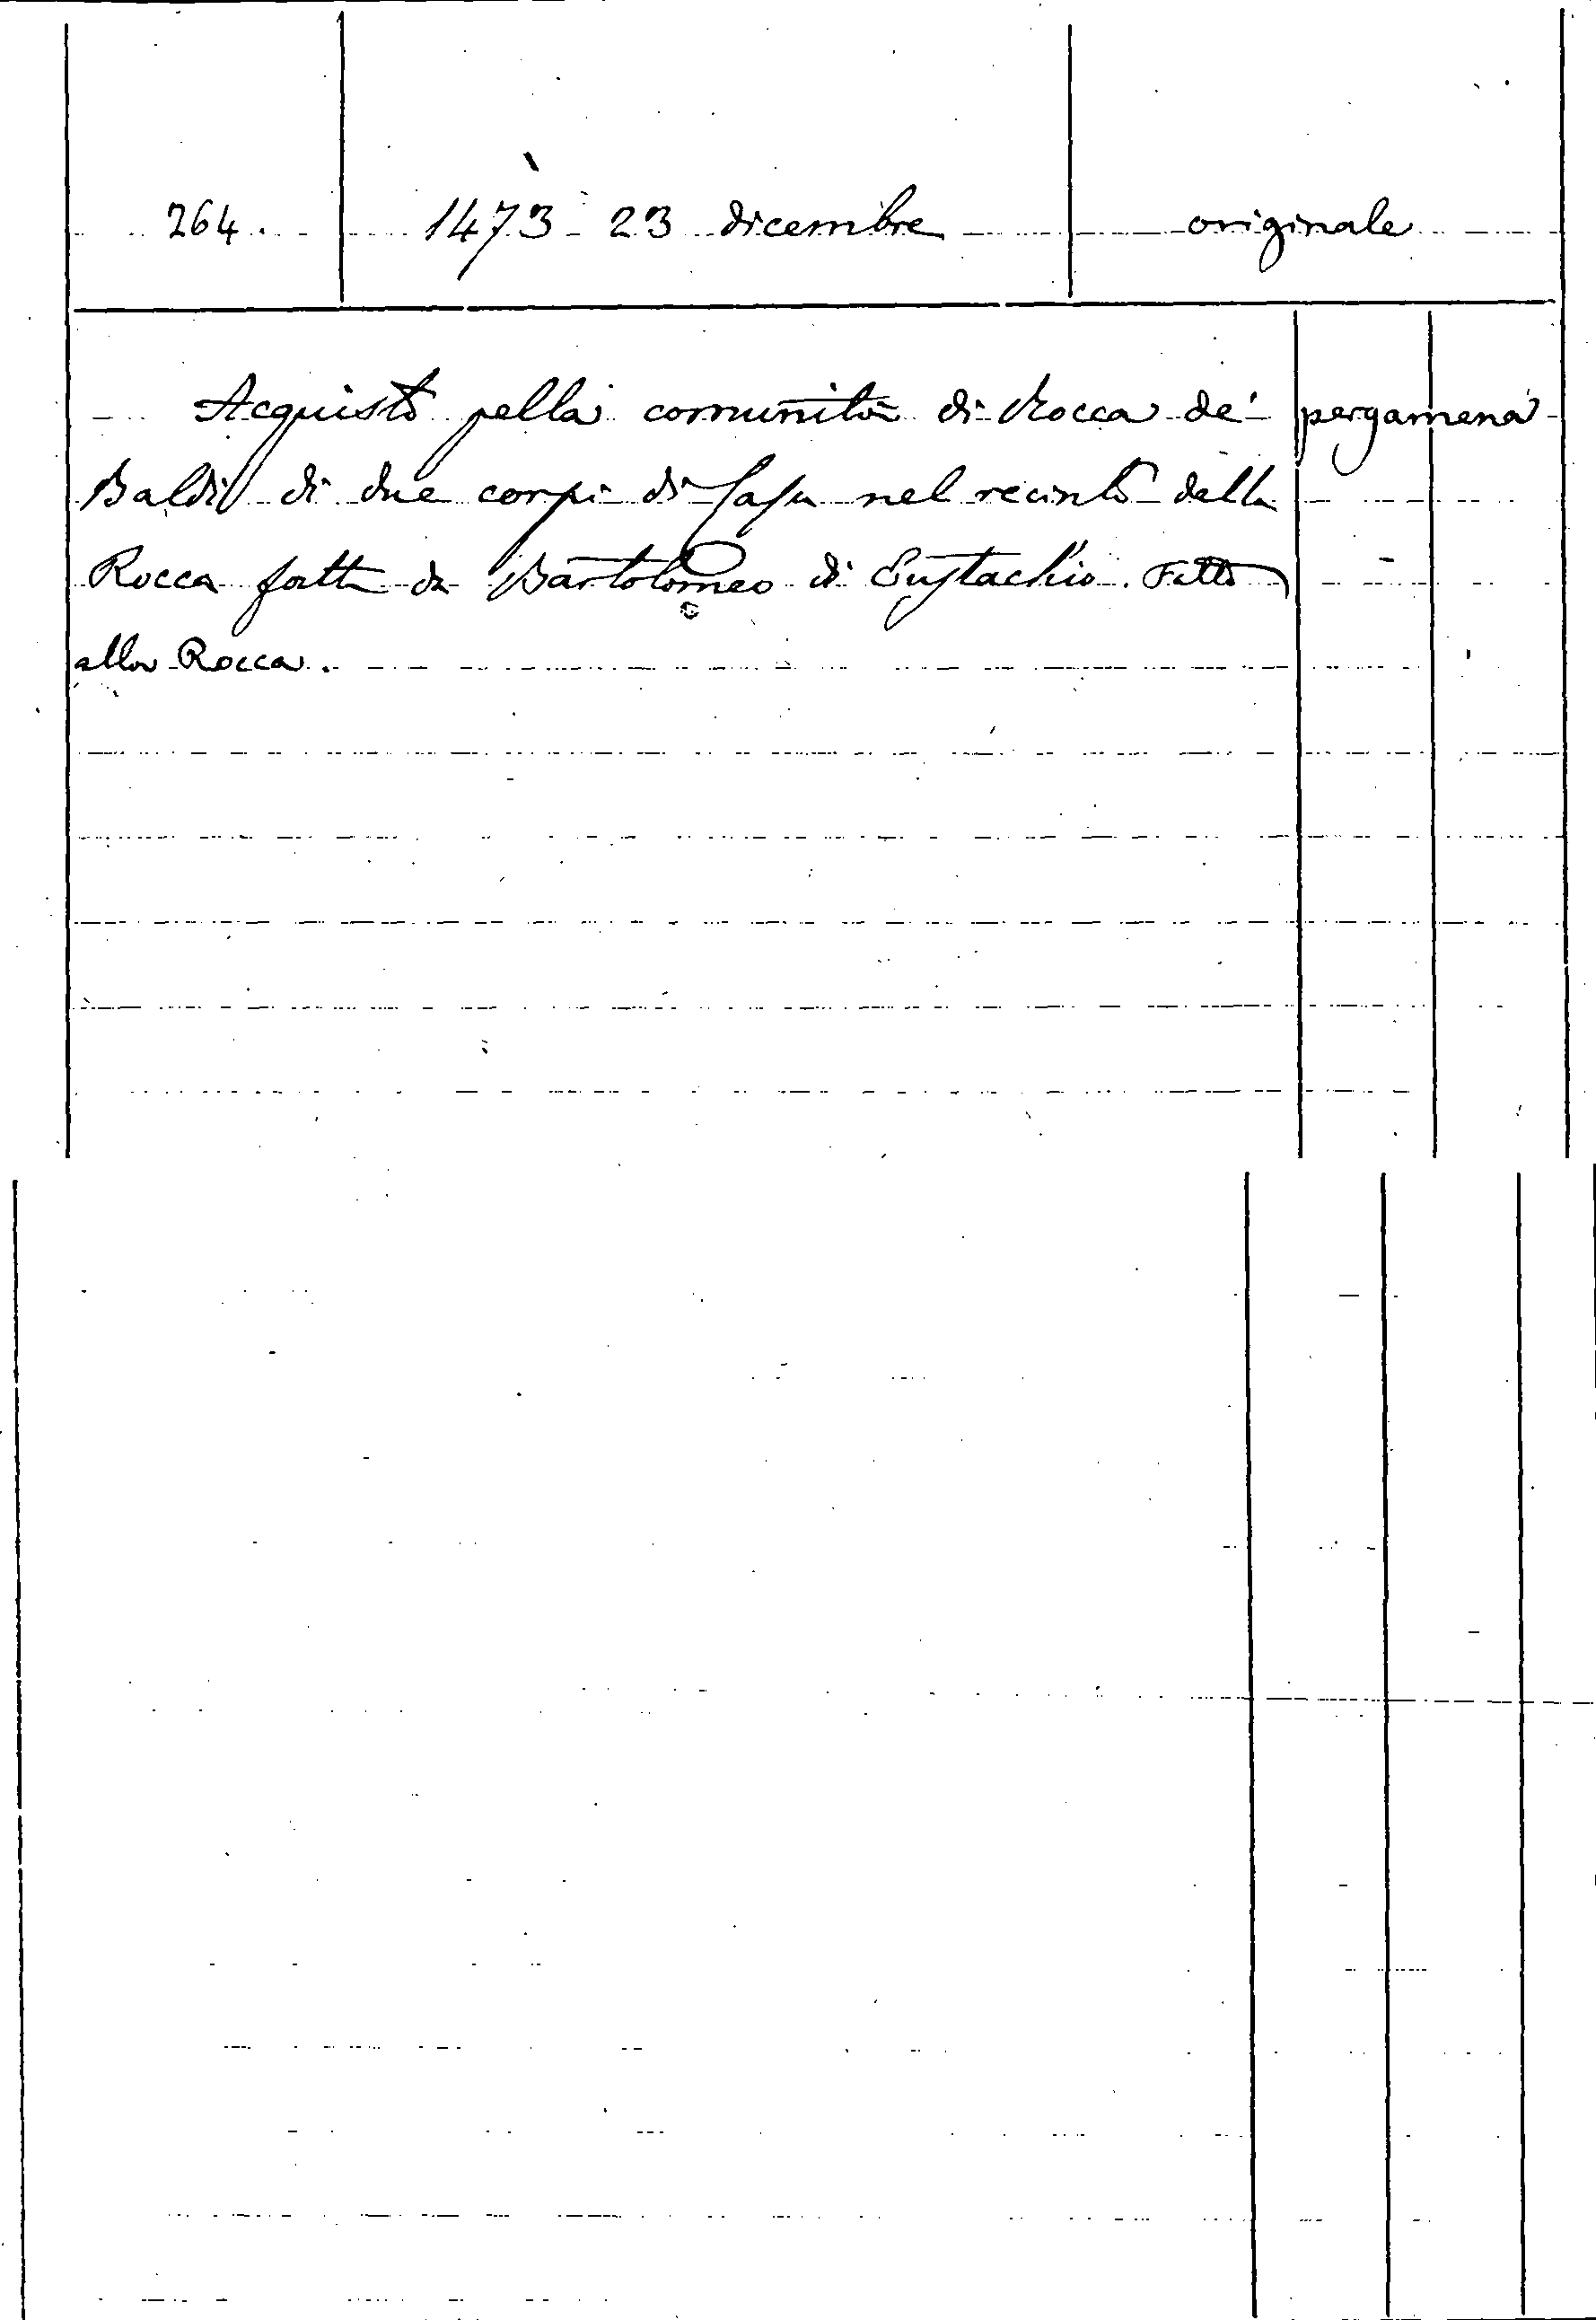 264. 1473 23 dicembre originale
Acquisto pella comunità di Rocca de' pergamena
Baldi di due corpi di Casa nel recinto della
Rocca fatto da Bartolomeo di Eustachio. Fatto
alla Rocca.